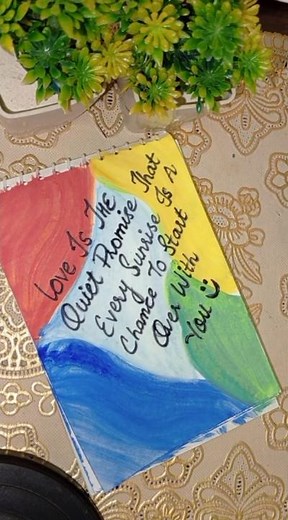 Love Is The
Quiet Promise That
Every Sunrise Is A
Chance To Start
Over With
You